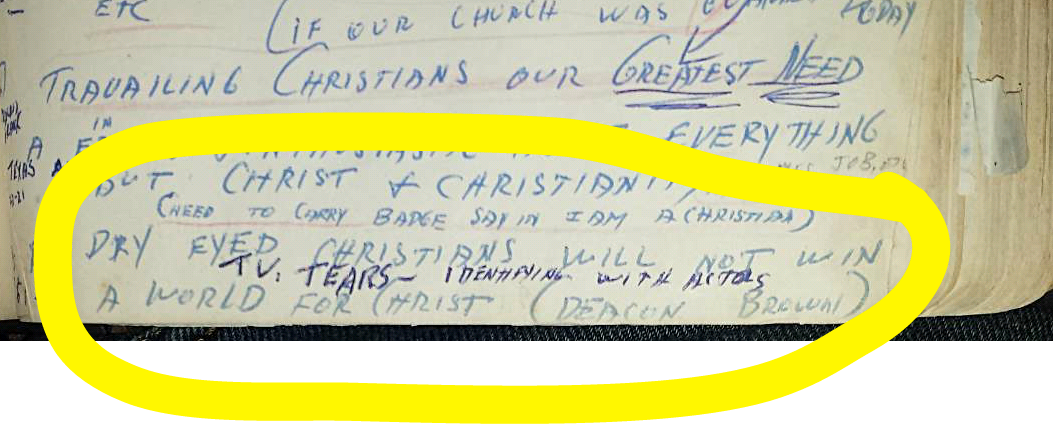 — ETC (IF OUR CHURCH WAS TODAY
TRAVAILING CHRISTIANS OUR GREATEST NEED
IN
A EVERYTHING
TEXAS
BUT CHRIST & CHRISTIANITY
JOB,
(NEED TO CARRY BADGE SAYIN I AM A CHRISTIAN)
DRY EYED CHRISTIANS WILL NOT WIN
T.V. TEARS — IDENTIFYING WITH ACTORS
A WORLD FOR CHRIST (DEACON BROWN)